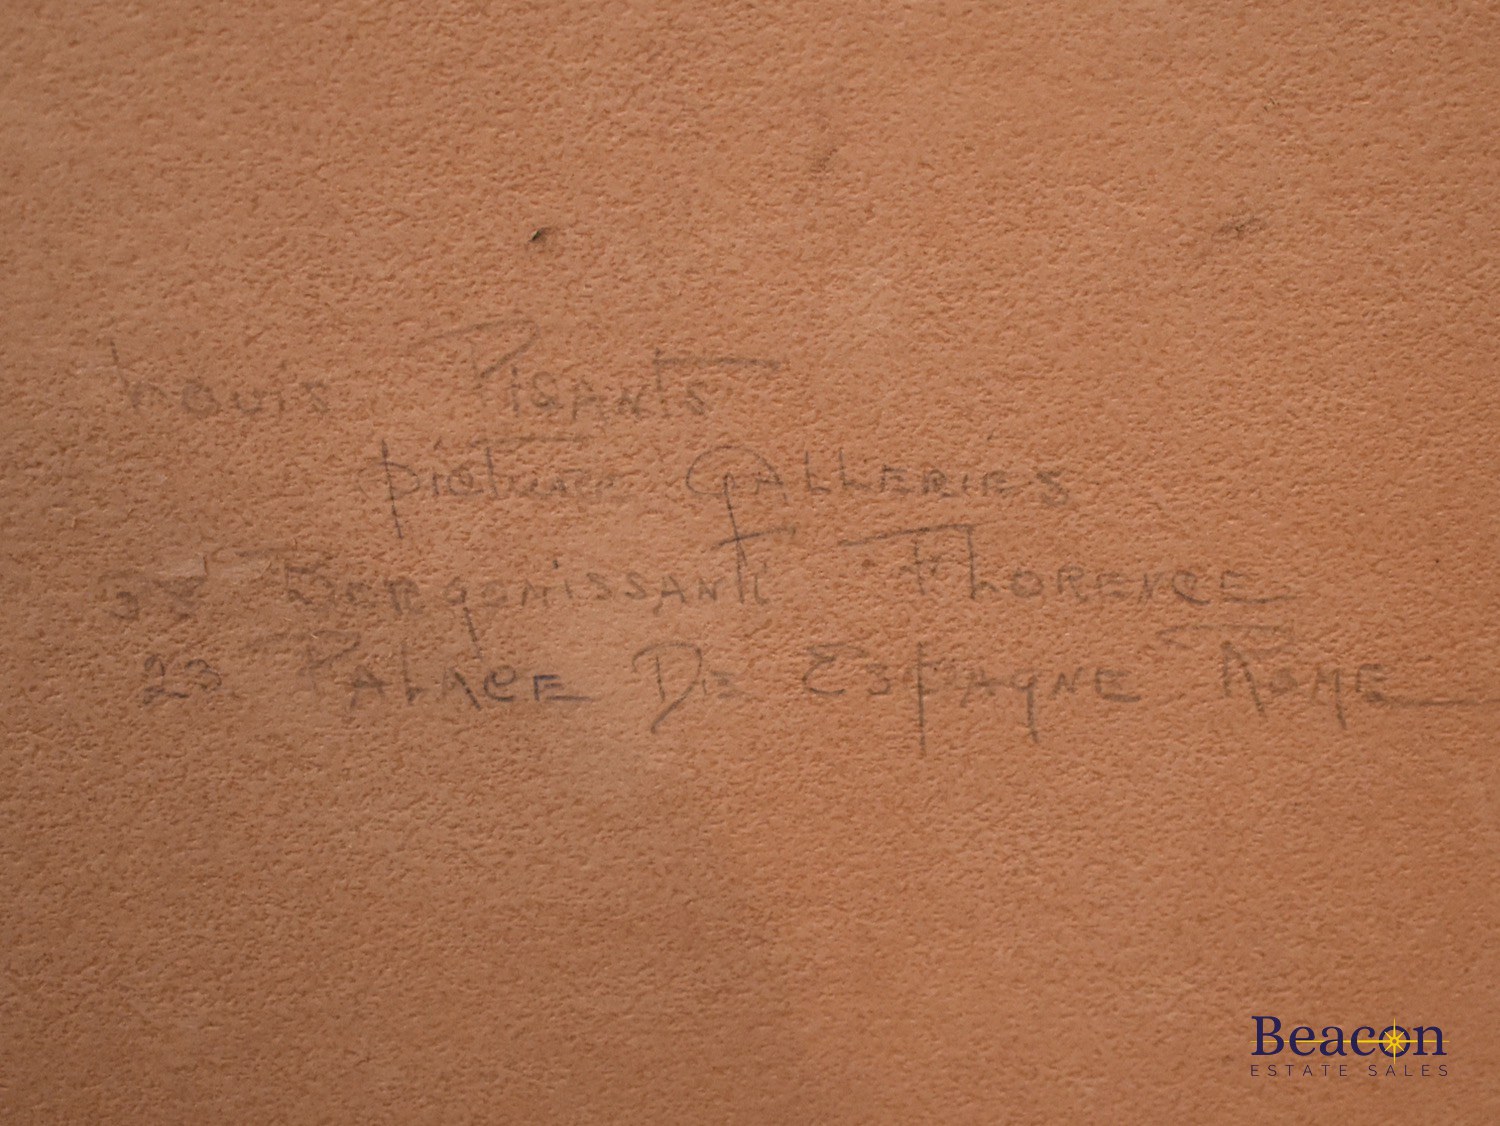 Louis Pisants
picture Galleries
38 Borgonissanti Florence
23. Palace De Espagne Rome
Beacon
ESTATE SALES